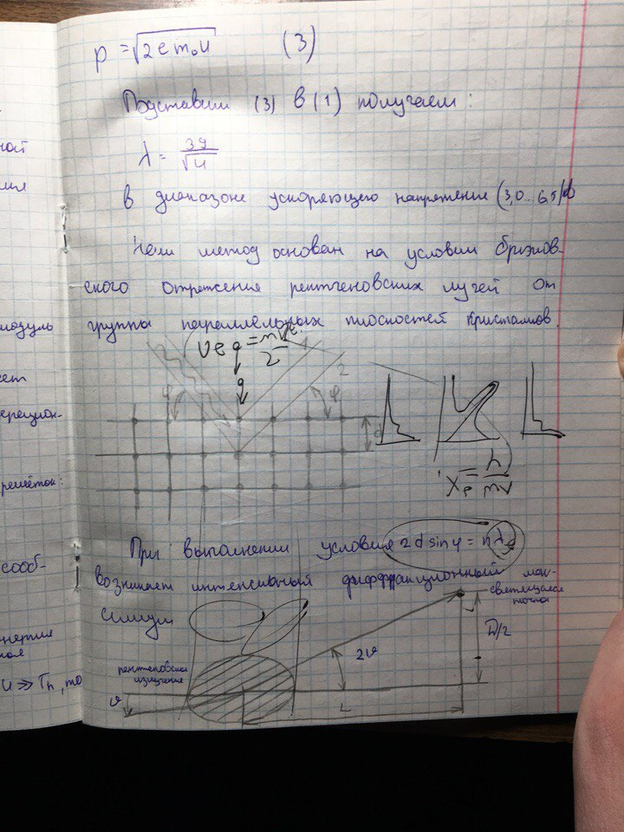 p = √2em₀u (3)
Подставим (3) в (1) получаем:
λ = 39/√u
в диапазоне ускоряющего напряжение (3,0...6,5)
метод основан на условии брэгов-
ского отражения рентгеновских лучей от
группы параллельных плоскостей кристаллов.
2
φ
d
= h/mv
При выполнении условия 2d sin φ = nλ
возникает интенсивный диффракционный мак-
симум
светящаяся
точка
D/2
рентгеновское
излучение
2ϑ
ϑ
L
ной
модуль
ерацион-
решёток:
сооб-
нергия
u ≫ Tn, то